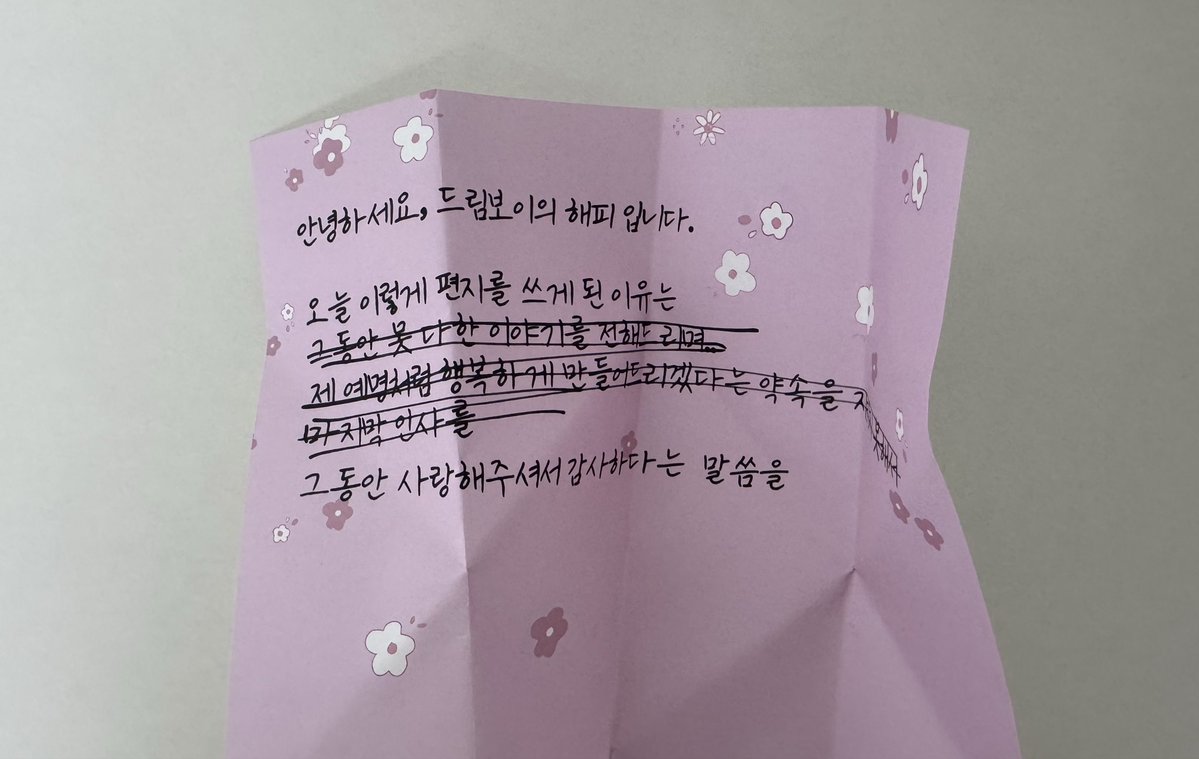 안녕하세요, 드림보이의 해피입니다.
오늘 이렇게 편지를 쓰게 된 이유는
그동안 못 다 한 이야기를 전해드리며...
제 예명처럼 행복하게 만들어드리겠다는 약속을
마지막 인사를
그동안 사랑해주셔서 감사하다는 말씀을